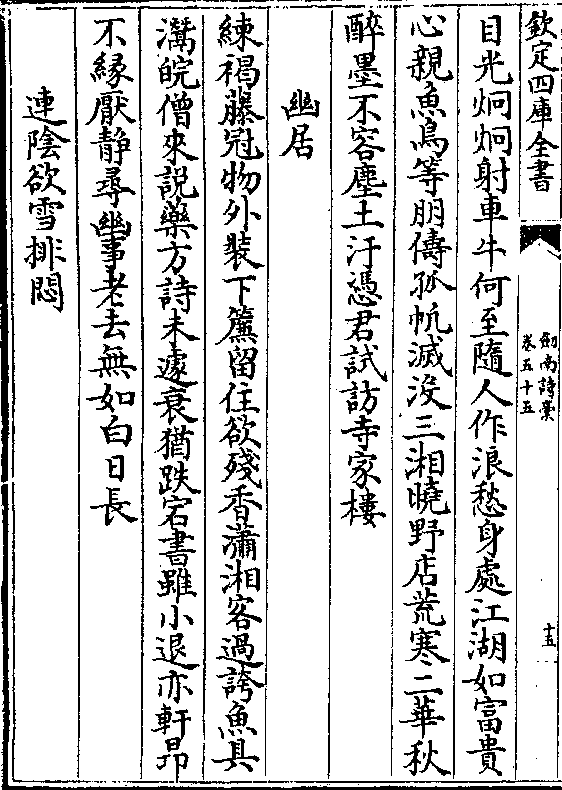 欽定四庫全書
劒南詩槀
卷五十五
十五
目光炯炯射車牛何至隨人作浪愁身處江湖如富貴
心親魚鳥等朋儔孤帆滅没三湘曉野店荒寒二華秋
醉墨不容塵土汙憑君試訪寺家樓
幽居
練褐藤冠物外裝下簾留住欲殘香瀟湘客過誇魚具
灊皖僧來説藥方詩未遽衰猶跌宕書雖小退亦軒昂
不緣厭静尋幽事老去無如白日長
連陰欲雪排悶